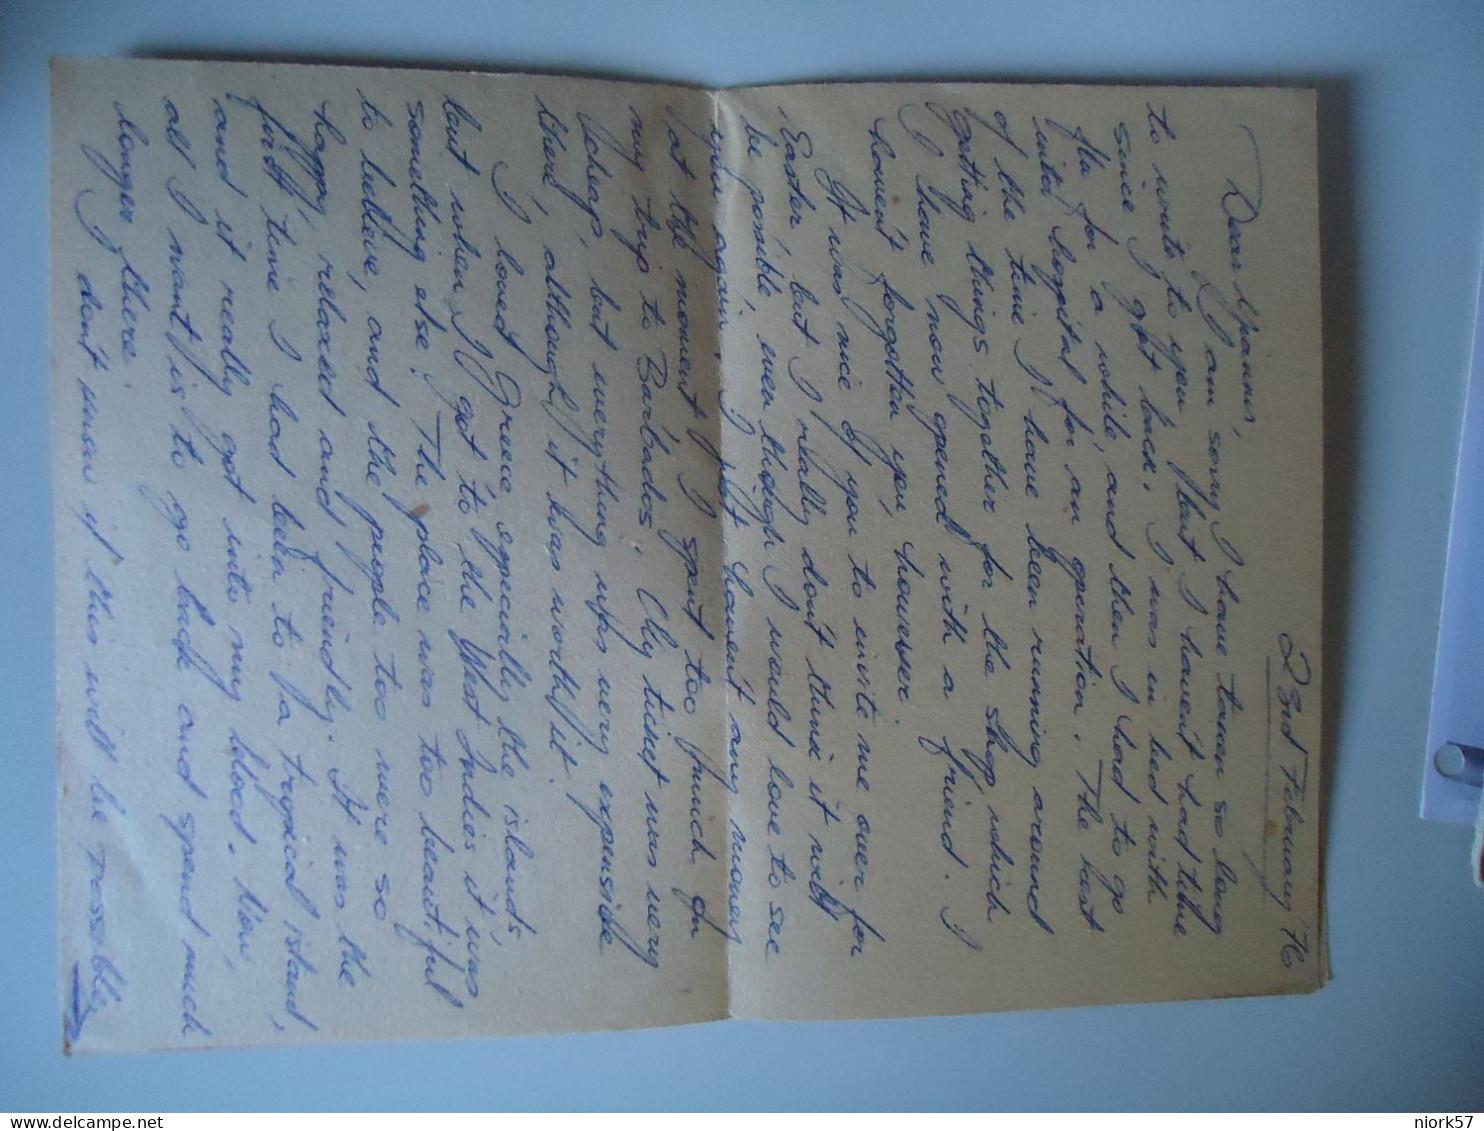 23rd February '76
Dear Yiannis,
I am sorry I have taken so long
to write to you but I haven't had time
since I got back. I was in bed with
flu for a while, and then I had to go
into hospital for an operation. The rest
of the time I have been running around
getting things together for the shop which
I have now opened with a friend. I
haven't forgotten you, however.
It was nice of you to invite me over for
Easter, but I really don't think it will
be possible, even though I would love to see
you again. I just haven't any money
at the moment. I spent too much on
my trip to Barbados. My ticket was very
cheap, but everything was very expensive
there, although it was worth it.
I loved Greece especially the islands,
but when I got to the West Indies it was
something else. The place was too beautiful
to believe, and the people too were so
happy, relaxed and friendly. It was the
first time I had been to a tropical island,
and it really got into my blood. Now,
all I want is to go back and spend much
longer there.
I don't know if this will be possible,
niork57